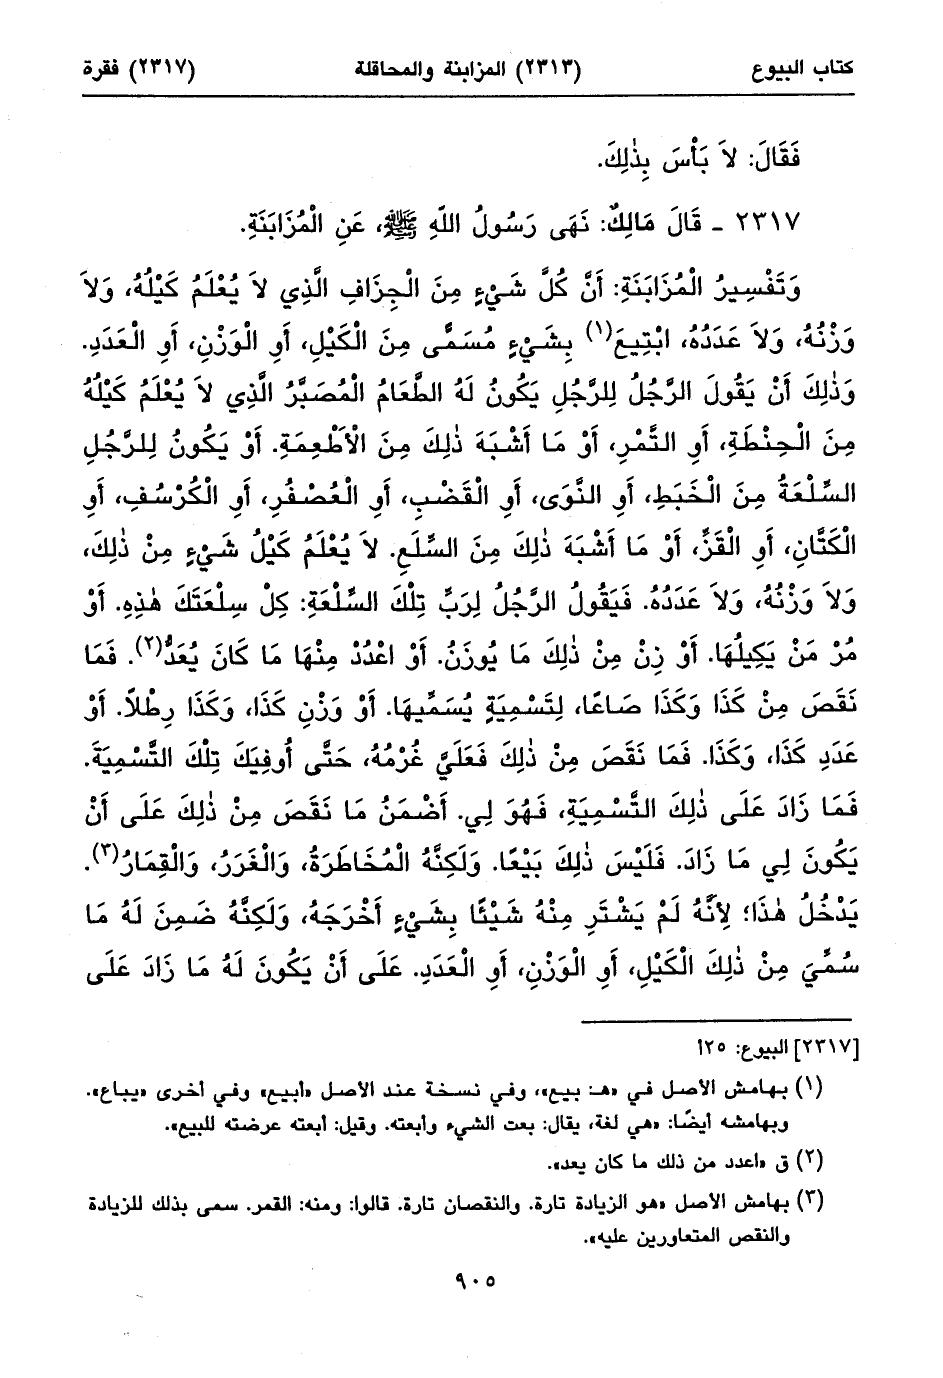 كتاب البيوع (٢٣١٣) المزابنة والمحاقلة (٢٣١٧) فقرة
فَقَالَ: لاَ بَأْسَ بِذٰلِكَ.
٢٣١٧ - قَالَ مَالِكٌ: نَهَى رَسُولُ اللّهِ ﷺ، عَنِ الْمُزَابَنَةِ.
وَتَفْسِيرُ الْمُزَابَنَةِ: أَنَّ كُلَّ شَيْءٍ مِنَ الْجِزَافِ الَّذِي لاَ يُعْلَمُ كَيْلُهُ، وَلاَ
وَزْنُهُ، وَلاَ عَدَدُهُ، ابْتِيعَ(١) بِشَيْءٍ مُسَمًّى مِنَ الْكَيْلِ، أَوِ الْوَزْنِ، أَوِ الْعَدَدِ.
وَذٰلِكَ أَنْ يَقُولَ الرَّجُلُ لِلرَّجُلِ يَكُونُ لَهُ الطَّعَامُ الْمُصَبَّرُ الَّذِي لاَ يُعْلَمُ كَيْلُهُ
مِنَ الْحِنْطَةِ، أَوِ التَّمْرِ، أَوْ مَا أَشْبَهَ ذٰلِكَ مِنَ الْأَطْعِمَةِ. أَوْ يَكُونُ لِلرَّجُلِ
السِّلْعَةُ مِنَ الْخَبَطِ، أَوِ النَّوَى، أَوِ الْقَضْبِ، أَوِ الْعُصْفُرِ، أَوِ الْكُرْسُفِ، أَوِ
الْكَتَّانِ، أَوِ الْقَزِّ، أَوْ مَا أَشْبَهَ ذٰلِكَ مِنَ السِّلَعِ. لاَ يُعْلَمُ كَيْلُ شَيْءٍ مِنْ ذٰلِكَ،
وَلاَ وَزْنُهُ، وَلاَ عَدَدُهُ. فَيَقُولُ الرَّجُلُ لِرَبِّ تِلْكَ السِّلْعَةِ: كِلْ سِلْعَتَكَ هٰذِهِ. أَوْ
مُرْ مَنْ يَكِيلُهَا. أَوْ زِنْ مِنْ ذٰلِكَ مَا يُوزَنُ. أَوْ اعْدُدْ مِنْهَا مَا كَانَ يُعَدُّ(٢). فَمَا
نَقَصَ مِنْ كَذَا وَكَذَا صَاعًا، لِتَسْمِيَةٍ يُسَمِّيهَا. أَوْ وَزْنِ كَذَا، وَكَذَا رِطْلاً. أَوْ
عَدَدِ كَذَا، وَكَذَا. فَمَا نَقَصَ مِنْ ذٰلِكَ فَعَلَيَّ غُرْمُهُ، حَتَّى أُوفِيَكَ تِلْكَ التَّسْمِيَةَ.
فَمَا زَادَ عَلَى ذٰلِكَ التَّسْمِيَةِ، فَهُوَ لِي. أَضْمَنُ مَا نَقَصَ مِنْ ذٰلِكَ عَلَى أَنْ
يَكُونَ لِي مَا زَادَ. فَلَيْسَ ذٰلِكَ بَيْعًا. وَلَكِنَّهُ الْمُخَاطَرَةُ، وَالْغَرَرُ، وَالْقِمَارُ(٣).
يَدْخُلُ هٰذَا؛ لِأَنَّهُ لَمْ يَشْتَرِ مِنْهُ شَيْئًا بِشَيْءٍ أَخْرَجَهُ، وَلَكِنَّهُ ضَمِنَ لَهُ مَا
سُمِّيَ مِنْ ذٰلِكَ الْكَيْلِ، أَوِ الْوَزْنِ، أَوِ الْعَدَدِ. عَلَى أَنْ يَكُونَ لَهُ مَا زَادَ عَلَى
[٢٣١٧] البيوع: ٢٥أ
(١) بهامش الأصل في «هـ: بيع»، وفي نسخة عند الاصل «أبيع» وفي أخرى «يباع».
وبهامشه أيضًا: «هي لغة، يقال: بعت الشيء وأبعته. وقيل: أبعته عرضته للبيع».
(٢) ق «اعدد من ذلك ما كان يعد».
(٣) بهامش الأصل «هو الزيادة تارة. والنقصان تارة. قالوا: ومنه: القمر. سمى بذلك للزيادة
والنقص المتعاورين عليه».
٩٠٥